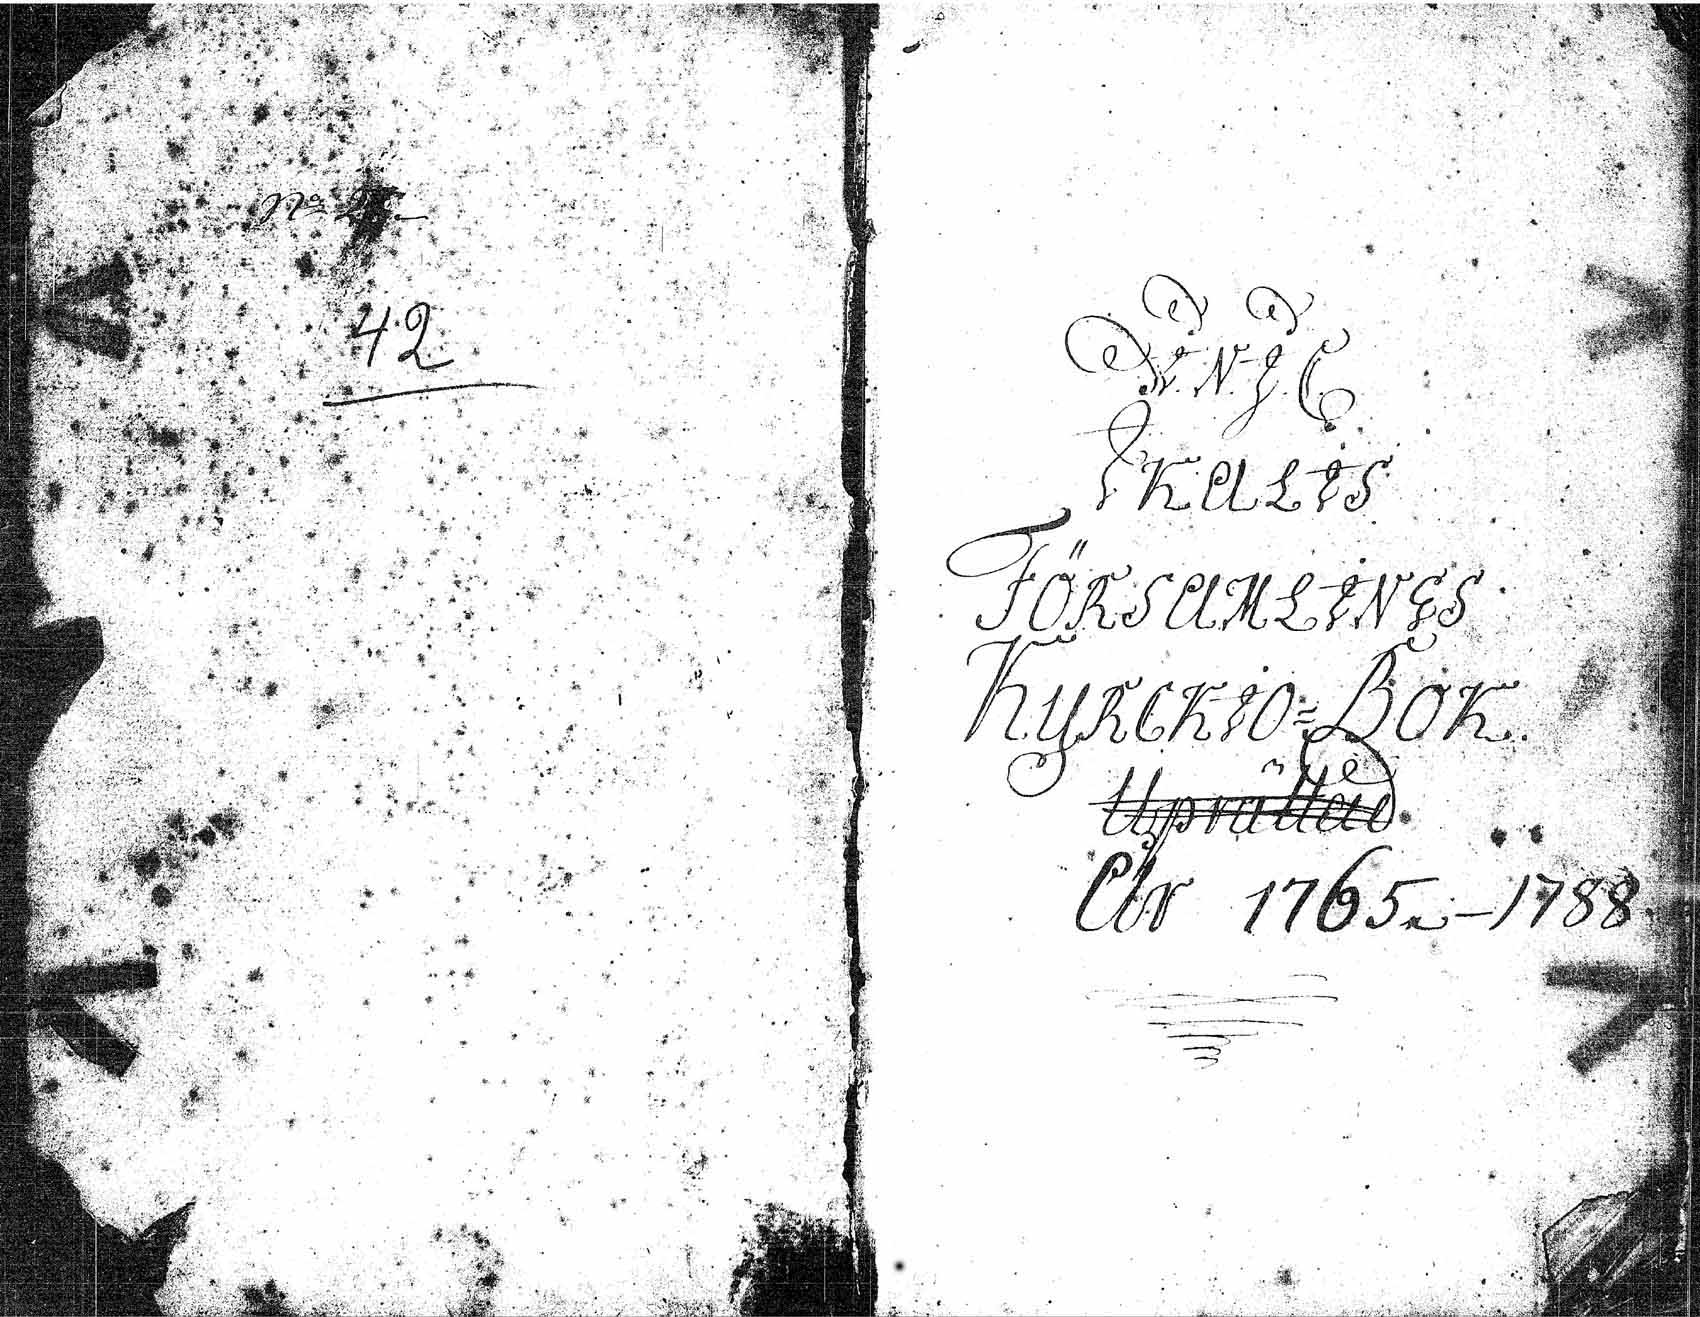 No 25.
42
I. N. J. C
IKALIS
FÖRSAMLINGS
KYRCKIO=BOK.
Uprättad
År 1765.–1788.